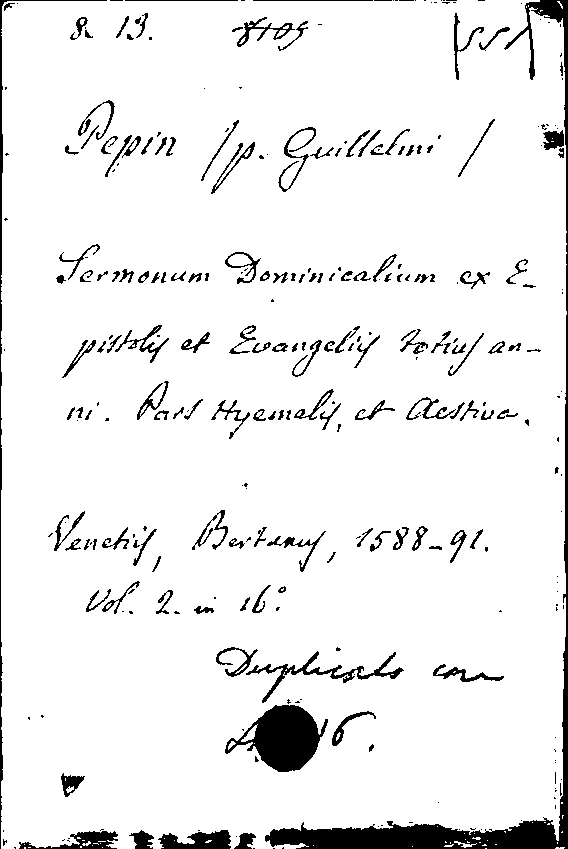 & 13. 8105
Pepin /p. Guillelmi /
Sermonum Dominicalium ex E-
pistolis et Evangeliis totius an-
ni. Pars Hyemalis, et Aestiva.
Venetiis, Bertanus, 1588-91.
Vol. 2. in 16°
Duplicato con
16.